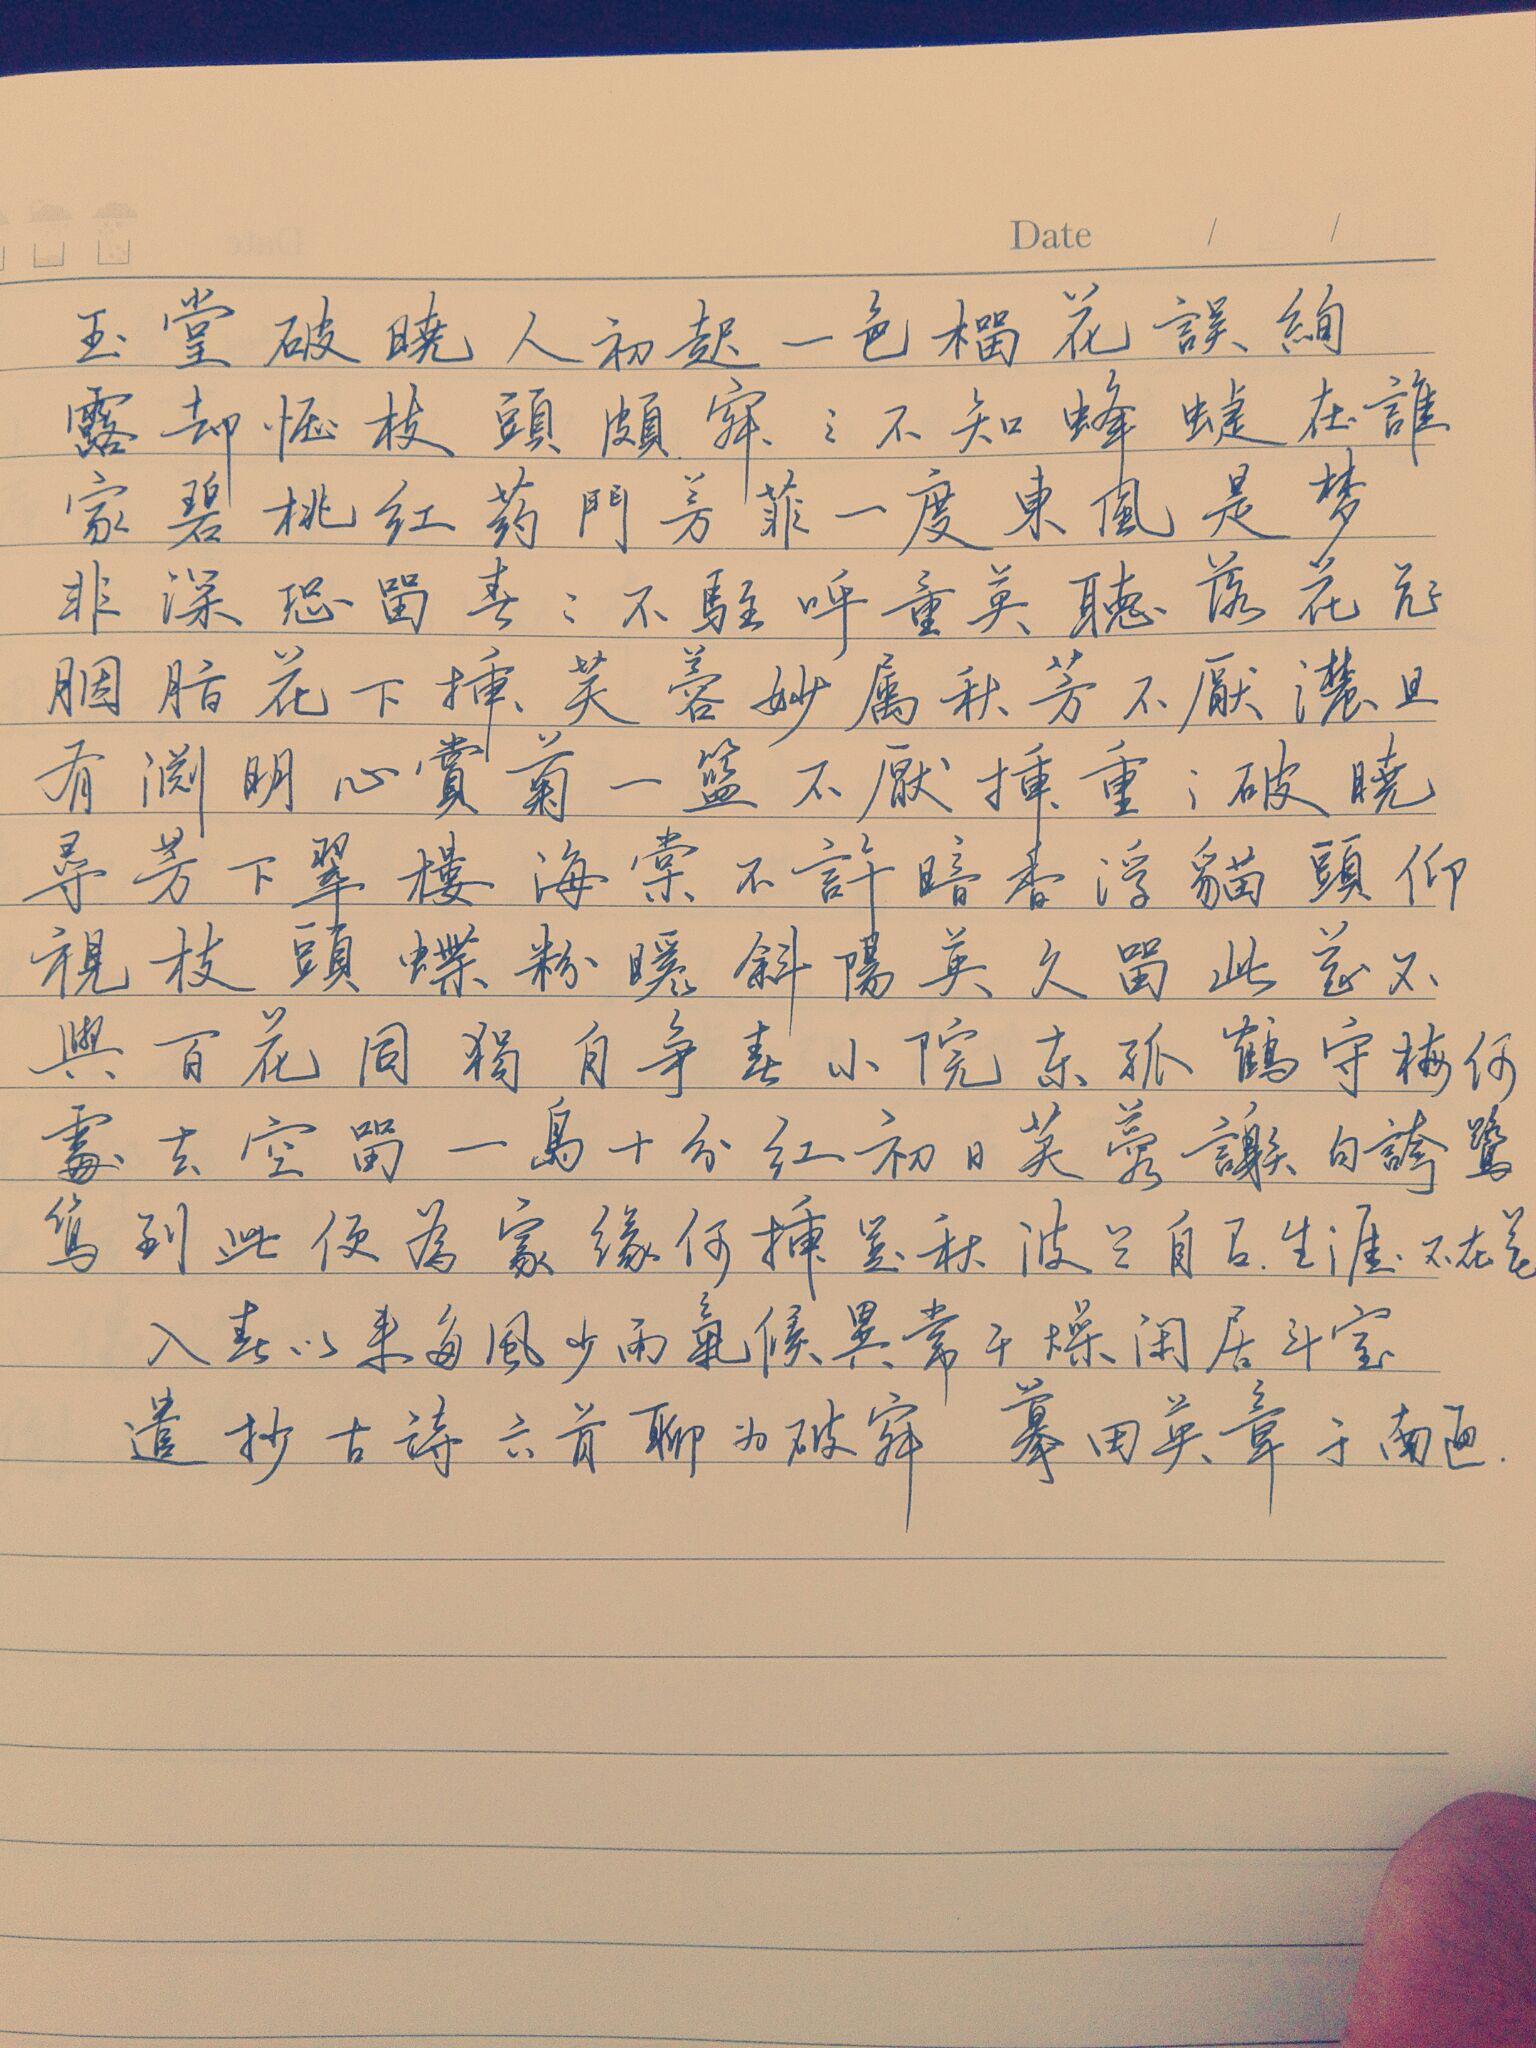 Date / /
玉堂破曉人初起一色榴花誤絢
露却怪枝頭頗寂〻不知蜂蜨在誰
家碧桃紅药鬥芳菲一度東風是梦
非深恐留春〻不駐呼童英聽落花飛
胭脂花下插芙蓉妙屬秋芳不厭濃且
有淵明心賞菊一籃不厭插重〻破曉
尋芳下翠樓海棠不許暗香浮貓頭仰
視枝頭蝶粉暖斜陽英久留此花不
與百花同獨自争春小院东孤鶴守梅何
處去空留一島十分紅初日芙蓉謝自誇鷺
鴛到此便為家緣何插茎秋波上自己生涯不在花
入春以来多風少雨氣候異常干燥闲居斗室
遣抄古詩六首聊为破寂 摹田英章于南通